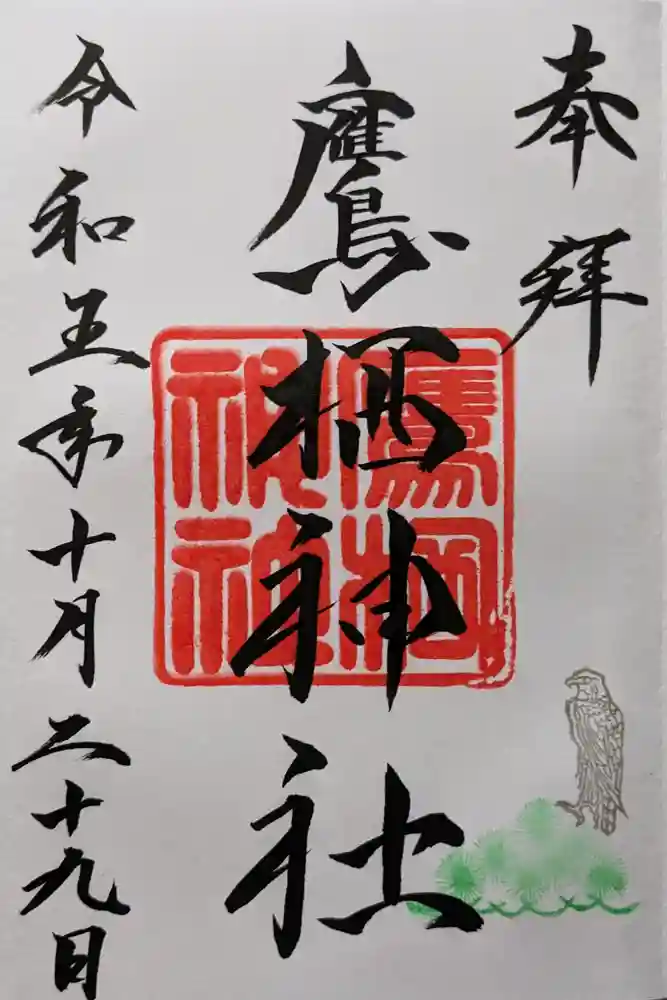 奉拝
鷹栖神社
令和五年十月二十九日